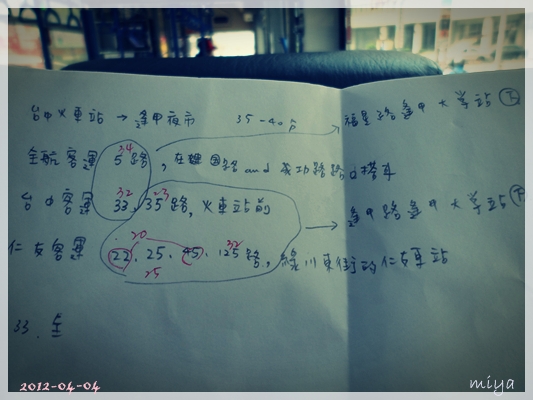 台中火車站 → 逢甲夜市 35-40分 福星路逢甲大學站(下)
34
全航客運 5路, 在建國路and成功路路口搭車
32 23
台中客運 33, 35路, 火車站前 → 逢甲路逢甲大學站(下)
20 32
仁友客運 22, 25, 45, 125路, 綠川東街的仁友車站
25
33. 全
2012-04-04
miya